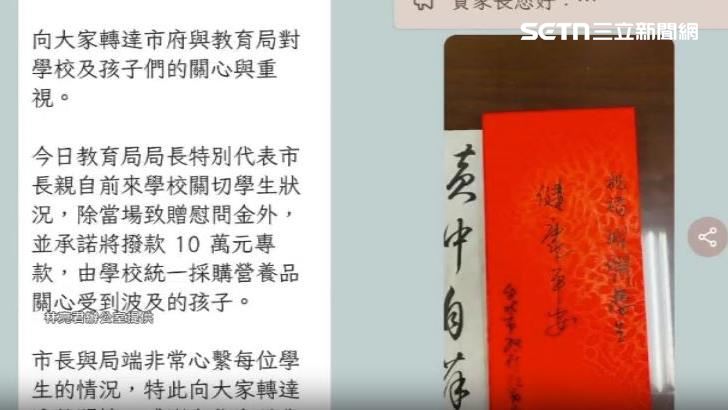 向大家轉達市府與教育局對
學校及孩子們的關心與重
視。
今日教育局局長特別代表市
長親自前來學校關切學生狀
況，除當場致贈慰問金外，
並承諾將撥款 10 萬元專
款，由學校統一採購營養品
關心受到波及的孩子。
林亮君辦公室提供
市長與局端非常心繫每位學
生的情況，特此向大家轉達
貴家長您好：…
SETN三立新聞網
黃中自
健康平安
祝福
台北市